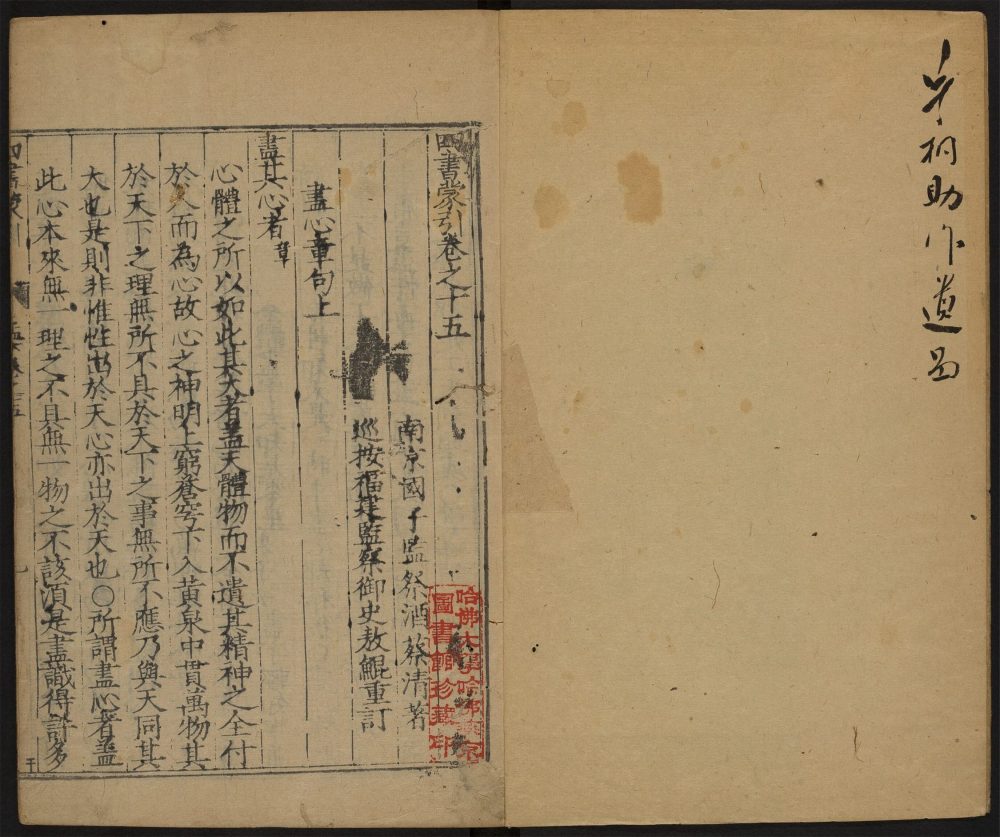 助作遺
四書蒙引卷之十五
南京國子監祭酒蔡清著
巡按福建監察御史敖鯤重訂
盡心章句上
盡其心者章
心體之所以如此其大者蓋天體物而不遺其精神之全付
於人而為心故心之神明上窮蒼穹下入黃泉中貫萬物其
於天下之理無所不具於天下之事無所不應乃與天同其
大也是則非惟性出於天心亦出於天也〇所謂盡心者蓋
此心本來無一理之不具無一物之不該須是盡識得許多
哈佛大學哈佛燕京
圖書館珍藏印